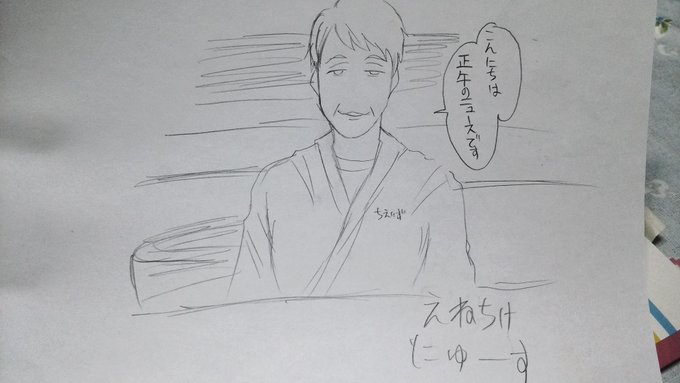 こんにちは
正午のニュースです
ちえりず
えねちけ
にゅーす